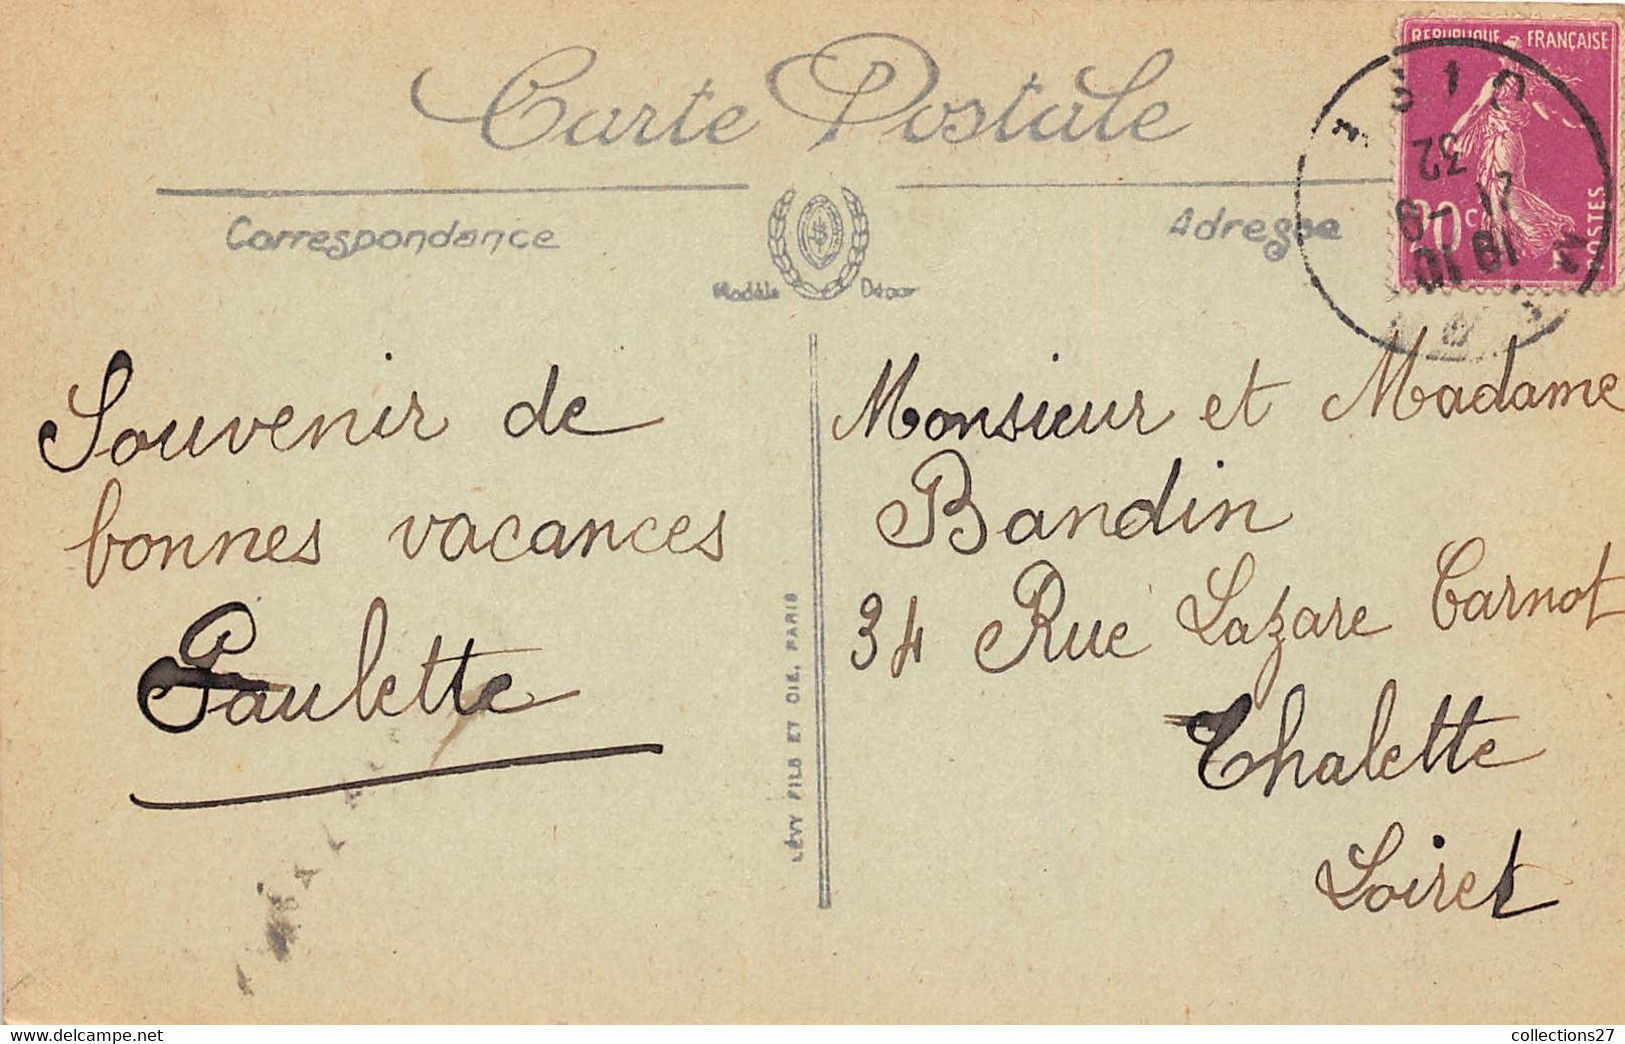 Carte Postale
Correspondance
Adresse
Modèle Déposé
REPUBLIQUE FRANÇAISE
20c
POSTES
32
21 -9
18 10
Souvenir de
bonnes vacances
Paulette
LÉVY FILS ET CIE, PARIS
Monsieur et Madame
Bandin
34 Rue Lazare Carnot
Chalette
Loiret
collections27